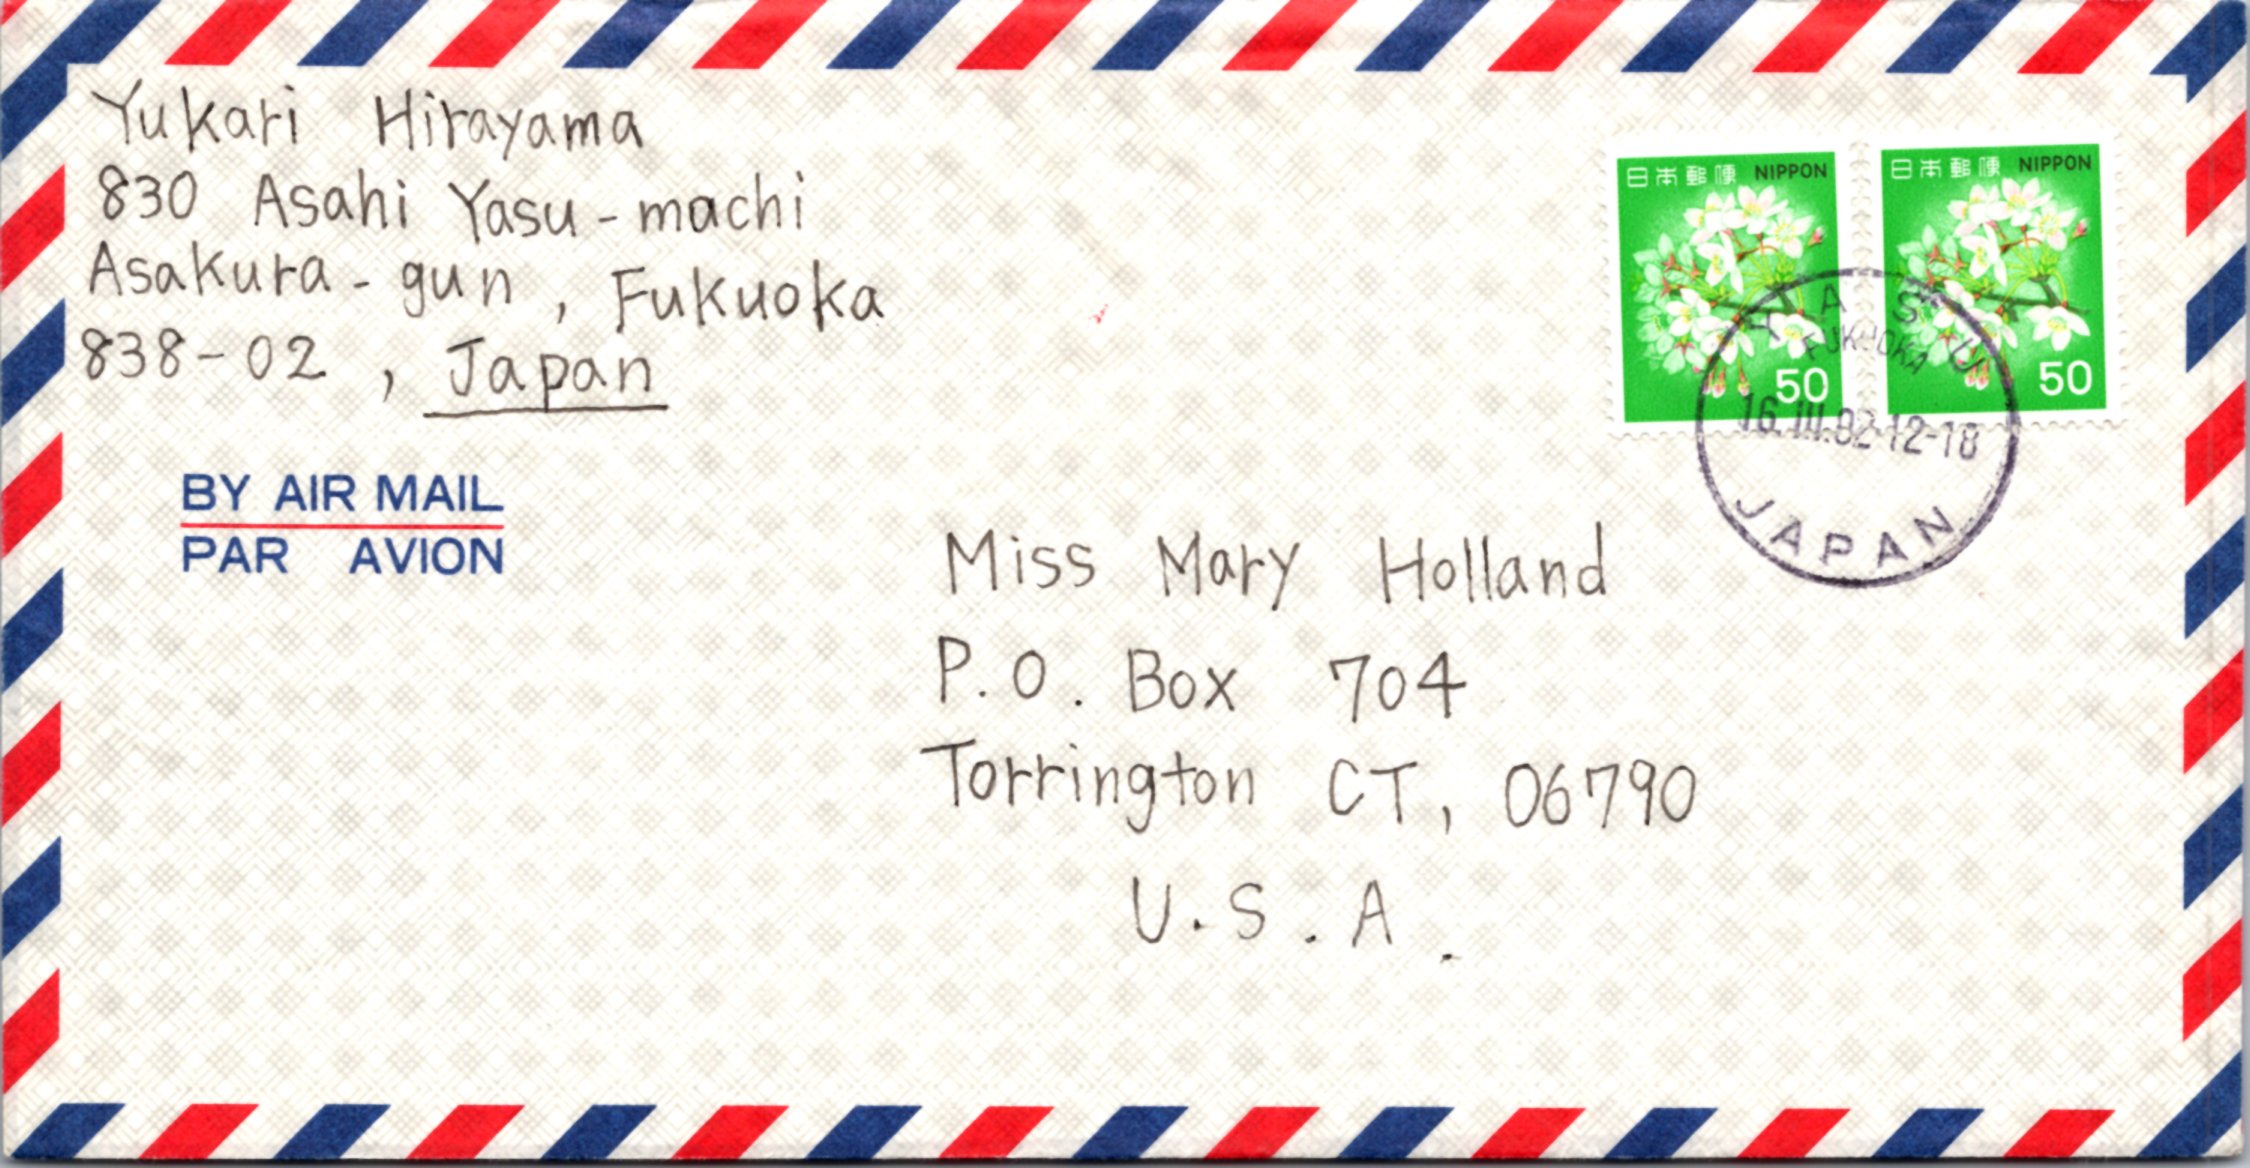 Yukari Hirayama
830 Asahi Yasu-machi
Asakura-gun, Fukuoka
838-02, Japan
日本郵便 NIPPON
50
日本郵便 NIPPON
50
YASU
FUKUOKA
16.III.92.12-18
JAPAN
BY AIR MAIL
PAR AVION
Miss Mary Holland
P.O. Box 704
Torrington CT, 06790
U.S.A.